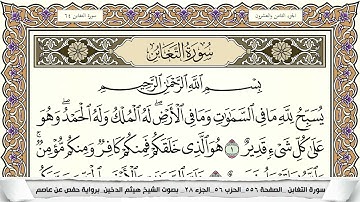 الجزء الثامن والعشرون
سورة التغابن ٦٤
سُورَةُ التَّغَابُنِ
بِسْمِ اللَّهِ الرَّحْمَٰنِ الرَّحِيمِ
يُسَبِّحُ لِلَّهِ مَا فِي السَّمَٰوَٰتِ وَمَا فِي الْأَرْضِ ۖ لَهُ الْمُلْكُ وَلَهُ الْحَمْدُ ۖ وَهُوَ
عَلَىٰ كُلِّ شَيْءٍ قَدِيرٌ ١ هُوَ الَّذِي خَلَقَكُمْ فَمِنكُمْ كَافِرٌ وَمِنكُم مُّؤْمِنٌ ۚ
سورة التغابن _ الصفحة ٥٥٦ _ الحزب ٥٦ _ الجزء ٢٨ _ بصوت الشيخ هيثم الدخين _ برواية حفص عن عاصم